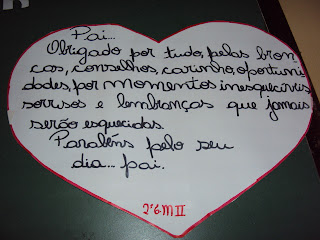 Pai...
Obrigado por tudo, pelas bron
cas, conselhos, carinho, oportuni
dades, por momentos inesquecíveis
sorrisos e lembranças que jamais
serão esquecidas.
Parabéns pelo seu
dia... pai.
2º G.M II